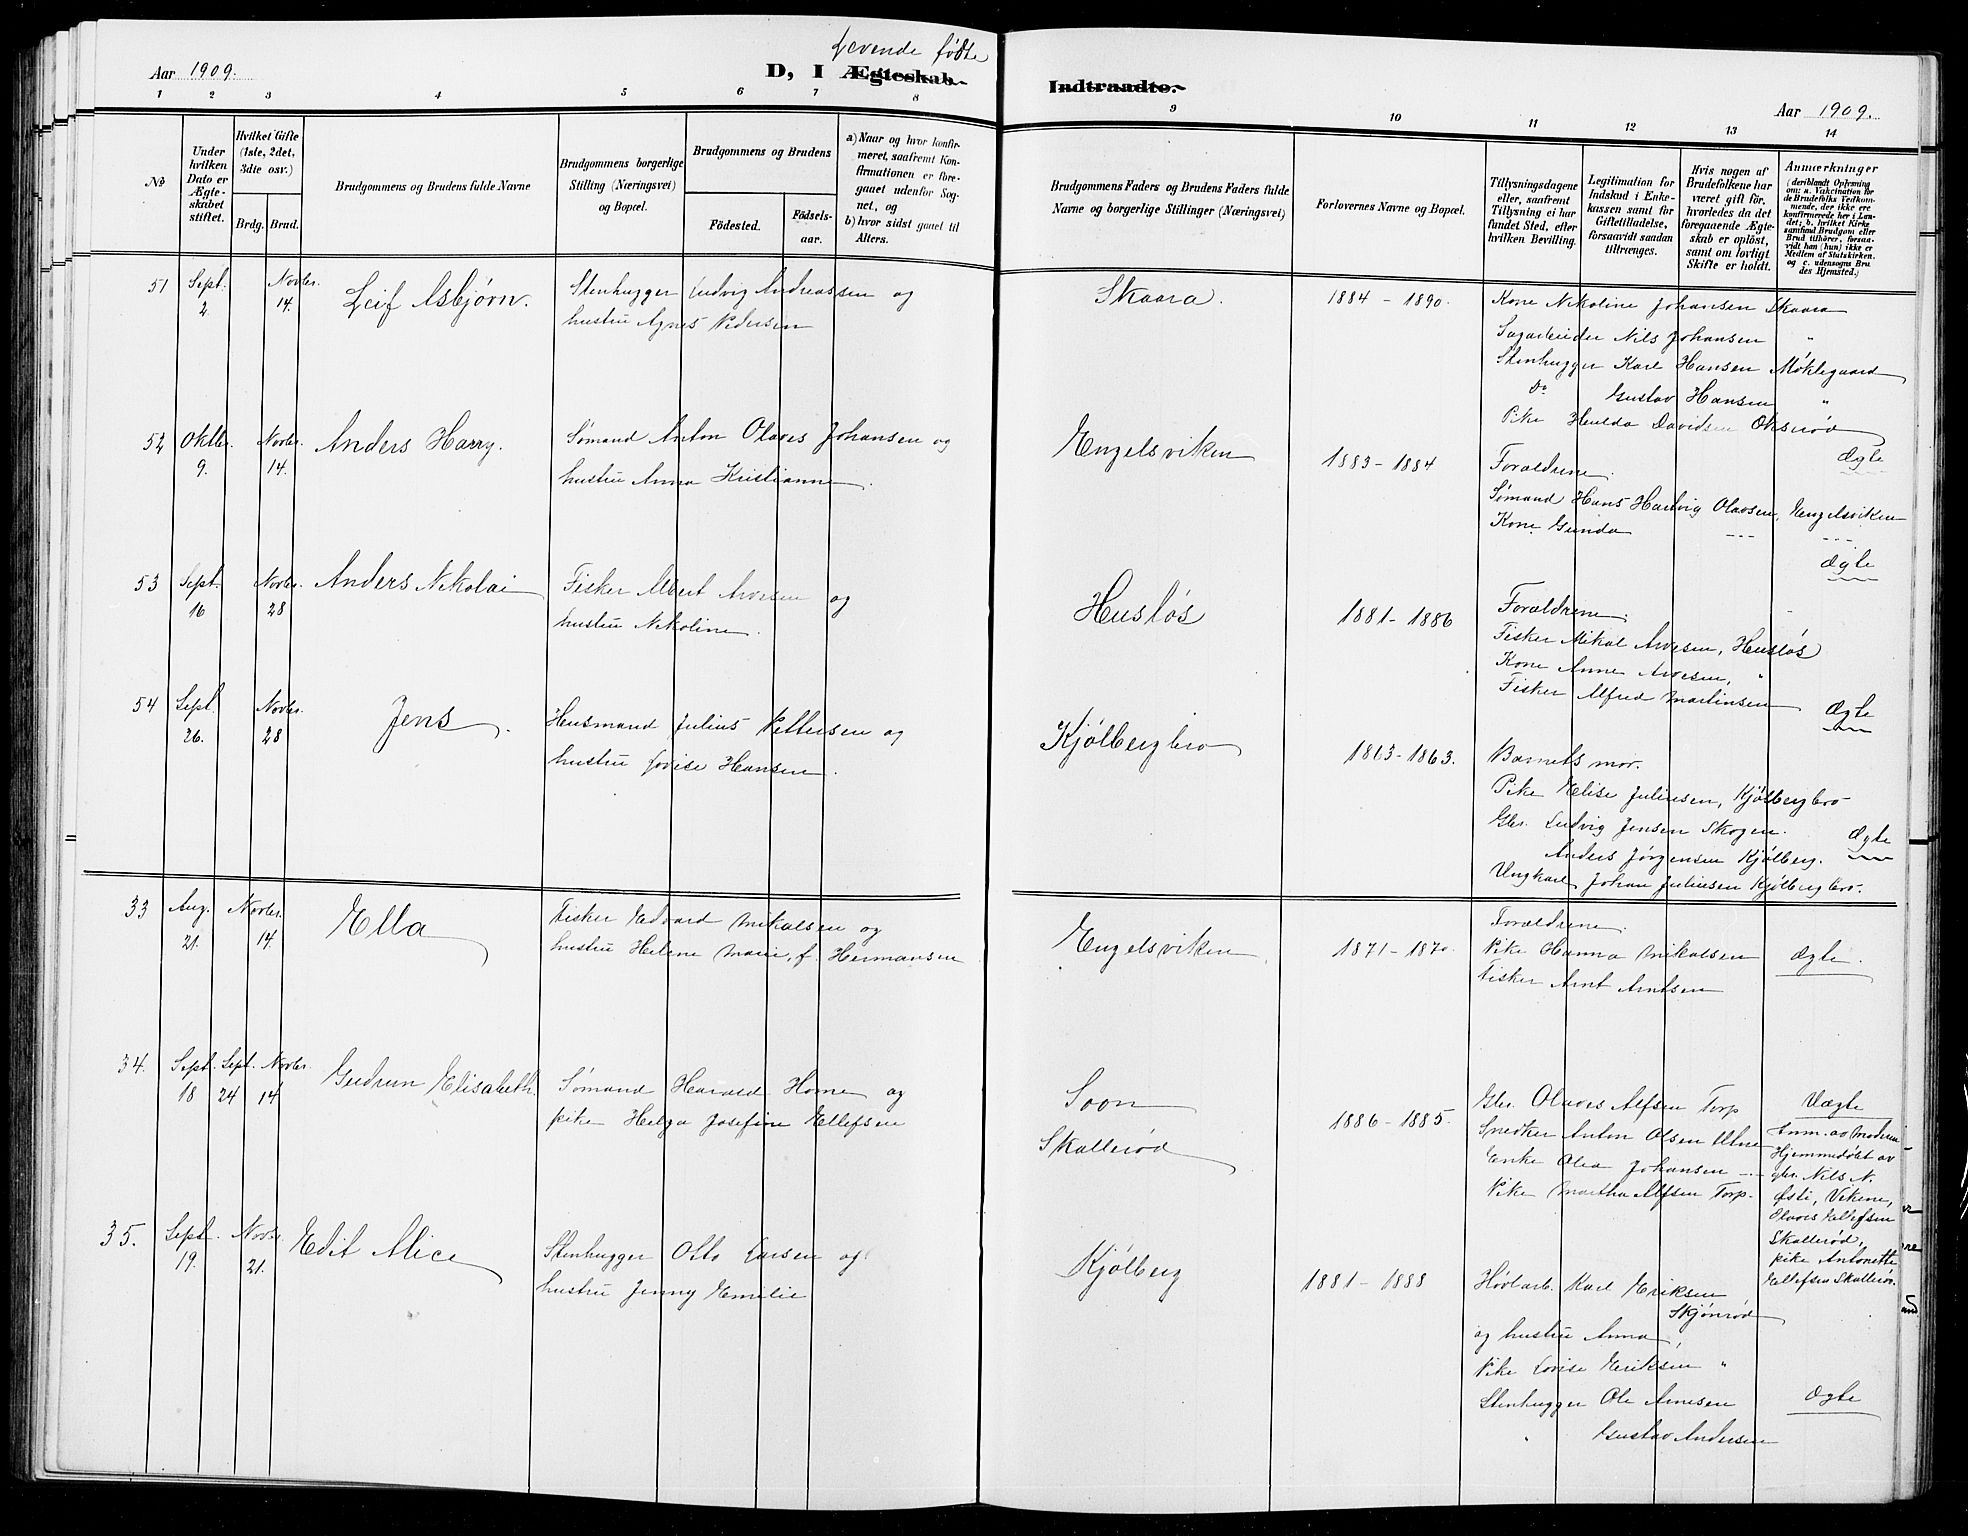 Levende fødte
Aar 1909.
D, I Ægteskab Indtraadte.
Aar 1909.
1 2 3 4 5 6 7 8 9 10 11 12 13 14
No
Under hvilken Dato er Ægteskabet stiftet.
Hvilket Gifte (1ste, 2det, 3dte osv.)
Brdg. Brud.
Brudgommens og Brudens fulde Navne
Brudgommens borgerlige Stilling (Næringsvei) og Bopæl.
Brudgommens og Brudens
Fødested.
Fødselsaar.
a) Naar og hvor konfirmeret, saafremt Konfirmationen er foregaaet udenfor Sognet, og
b) hvor sidst gaaet til Alters.
Brudgommens Faders og Brudens Faders fulde Navne og borgerlige Stillinger (Næringsvei)
Forlovernes Navne og Bopæl.
Tillysningsdagene eller, saafremt Tillysning ei har fundet Sted, efter hvilken Bevilling.
Legitimation for Indskud i Enkekassen samt for Giftetilladelse, forsaavidt saadan tiltrænges.
Hvis nogen af Brudefolkene har været gift før, hvorledes da det foregaaende Ægteskab er opløst, samt om lovligt Skifte er holdt.
Anmærkninger
(deriblandt Oplysning om: a. Vakcination for de Brudefolks Vedkommende, der ikke ere konfirmerede her i Landet; b. hvilket Kirkesamfund Brudgom eller Brud tilhører, forsaavidt han (hun) ikke er Medlem af Statskirken, og c. udensogns Brudes Hjemsted.)
51 Sept. 2 Novbr. 14. Leif Asbjørn. Stenhugger Ludvig Andreassen og
hustru Agnes Pedersen
Skaara. 1884 - 1890.
Kone Nikoline Johansen Skaara
Sagarbeider Nils Johansen "
Stenhugger Karl Hansen Møklegaard
Do Gustav Hansen "
Pike Hulda Davidsen Oksrød
Ægte
52 Oktbr. 9. Novbr. 14. Anders Harry. Sømand Anton Olaves Johansen og
hustru Anna Kristianne.
Engelsviken 1883 - 1884
Forældrene.
Sømand Hans Hartvig Olavsen, Engelsviken
Kone Gunda - - -
Ægte
53 Sept. 16 Novbr. 28 Anders Nikolai Fisker Albert Arvesen og
hustru Nikoline.
Husløs 1881 - 1886
Forældrene.
Fisker Mikal Arvesen, Husløs
Kone Anne Arvesen, "
Fisker Alfred Martinsen
Ægte
54 Sept. 26. Novbr. 28 Jens. Husmand Julius Pettersen og
hustru Lovise Hansen.
Kjølbergbro 1863 - 1863.
Barnets mor.
Pike Elise Juliusen, Kjølbergbro
Gbr. Ludvig Jensen Skogen.
Anders Jørgensen Kjølberg.
Ungkarl Johan Juliusen Kjølbergbro.
Ægte
33 Aug. 21. Novbr. 14. Ella Fisker Edvard Mikalsen og
hustru Helene Marie, f. Hermansen
Engelsviken 1871 - 1870.
Forældrene.
Pike Hanna Mikalsen
Fisker Arnt Arntsen
Ægte.
34. Sept. 18 Sept. 24 Novbr. 14 Gudrun Elisabeth. Sømand Harald Horne og
pike Helga Josefine Ellefsen
Soon
Skallerød
1886 - 1885.
Gbr. Olaves Alfsen Torp
Snedker Anton Olsen
Enke Olea Johansen -.-
Pike Martha Alfsen Torp.
Uægte
Anm. av moderen
Hjemmedøbt av
gbr. Nils N.
Østi, Vikene,
Olaves Ellefsen
Skallerød,
pike Antonette
Ellefsen Skallerød.
35. Sept. 19. Novbr. 21. Edit Alice Stenhugger Otto Larsen og
hustru Jenny Emilie
Kjølberg 1881 - 1888
Høvlarb. Karl Eriksen
Skjønrød
og hustru Anna,
Pike Lovise Eriksen "
Stenhugger Ole Arnesen
" Gustav Andersen
Ægte